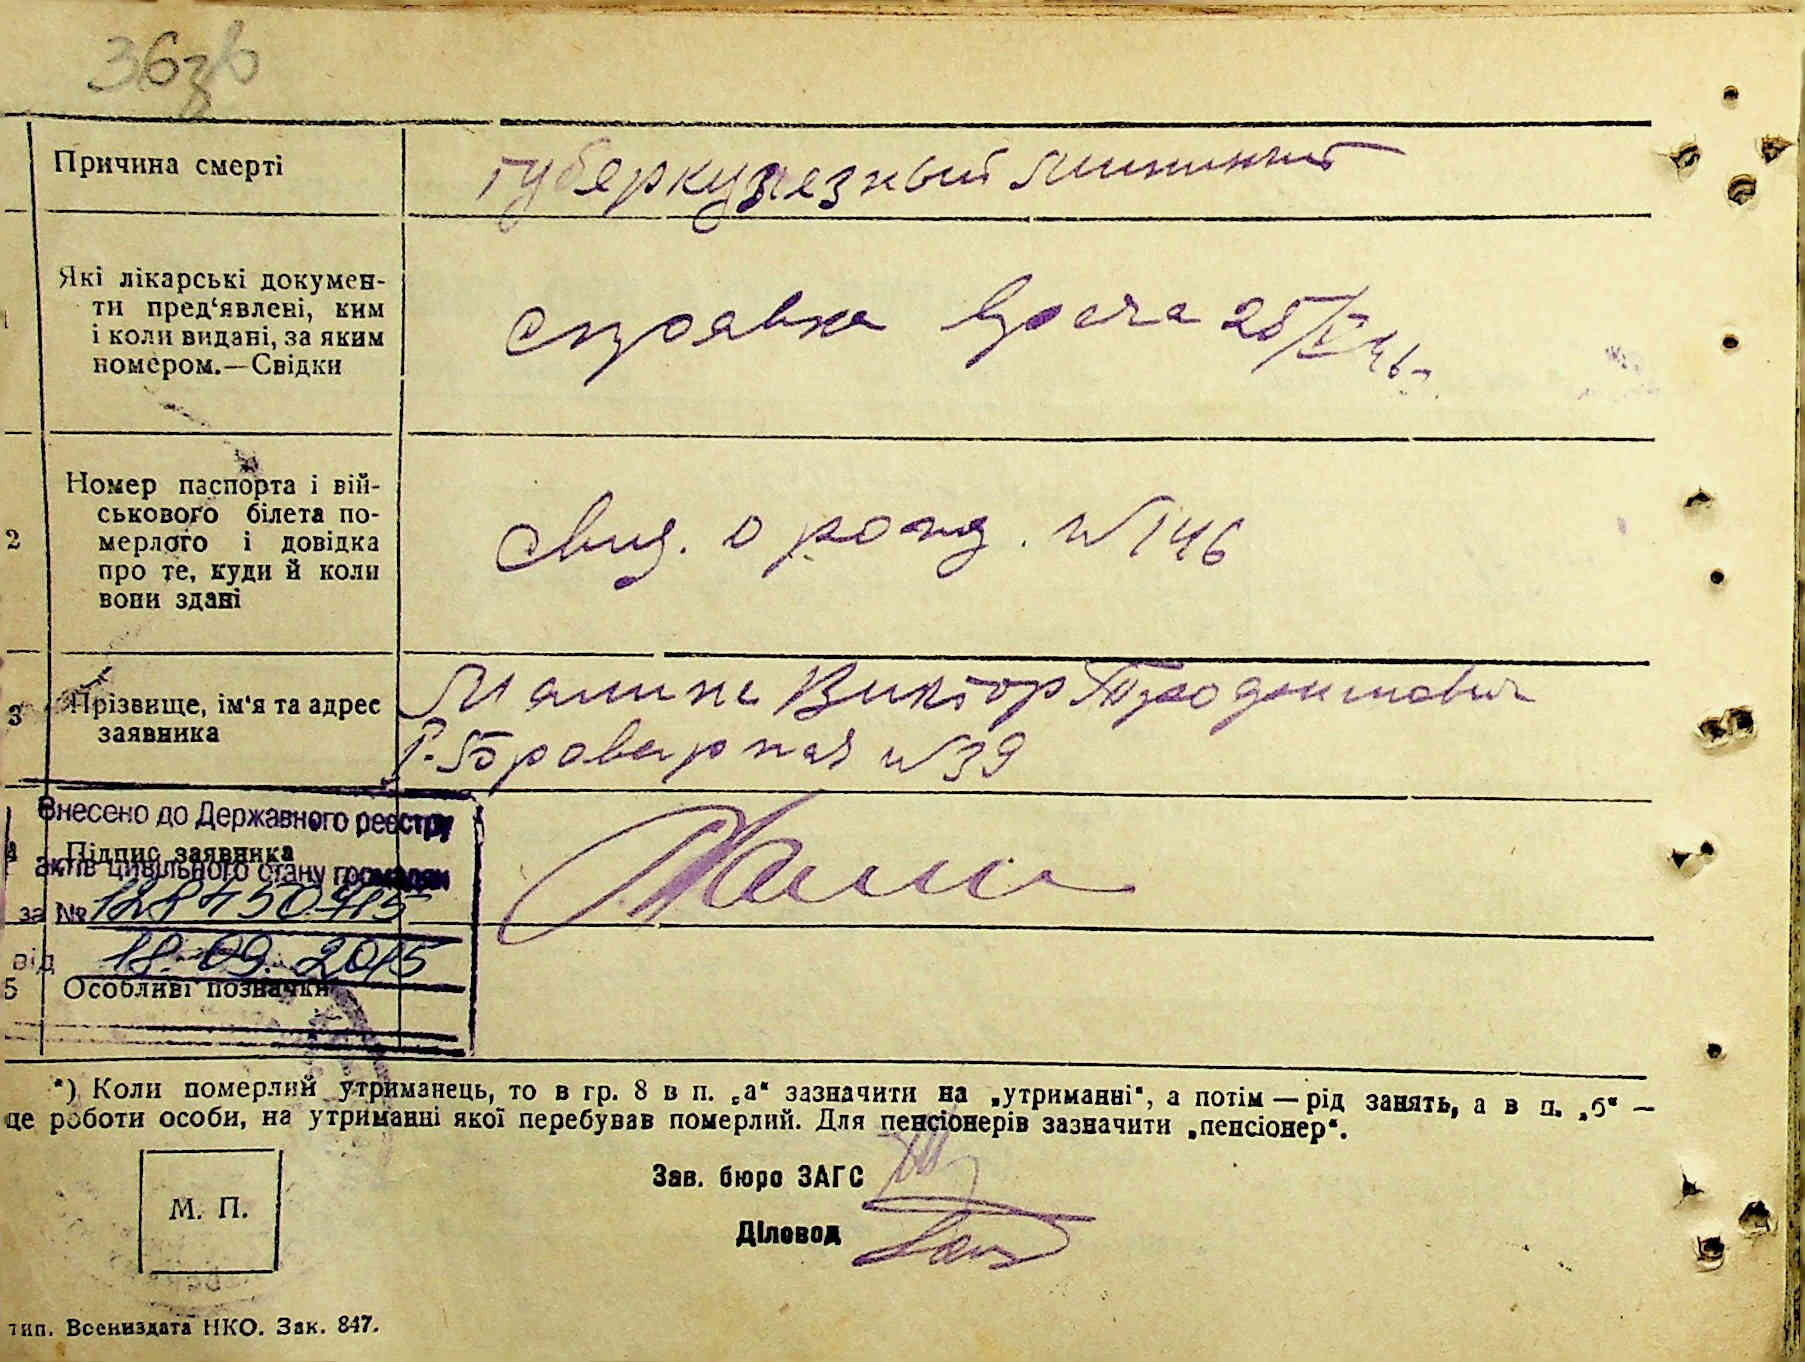 36зв
Причина смерті
туберкулезный мининнит
Які лікарські докумен-
ти пред'явлені, ким
і коли видані, за яким
номером.—Свідки
справка врача 25/V 46
2
Номер паспорта і вій-
ськового білета по-
мерлого і довідка
про те, куди й коли
вони здані
свид. о рожд. N 146
3
Прізвище, ім'я та адрес
заявника
Виктор
Р. Броварная N 39
Внесено до Державного реєстру
Підпис заявника
актів цивільного стану громадян
за №
від 18.09.2015
5
Особливі позначки
*) Коли померлий утриманець, то в гр. 8 в п. „а“ зазначити на „утриманні“, а потім — рід занять, а в п. „б“ —
це роботи особи, на утриманні якої перебував померлий. Для пенсіонерів зазначити „пенсіонер“.
Зав. бюро ЗАГС
М. П.
Діловод
тип. Воениздата НКО. Зак. 847.